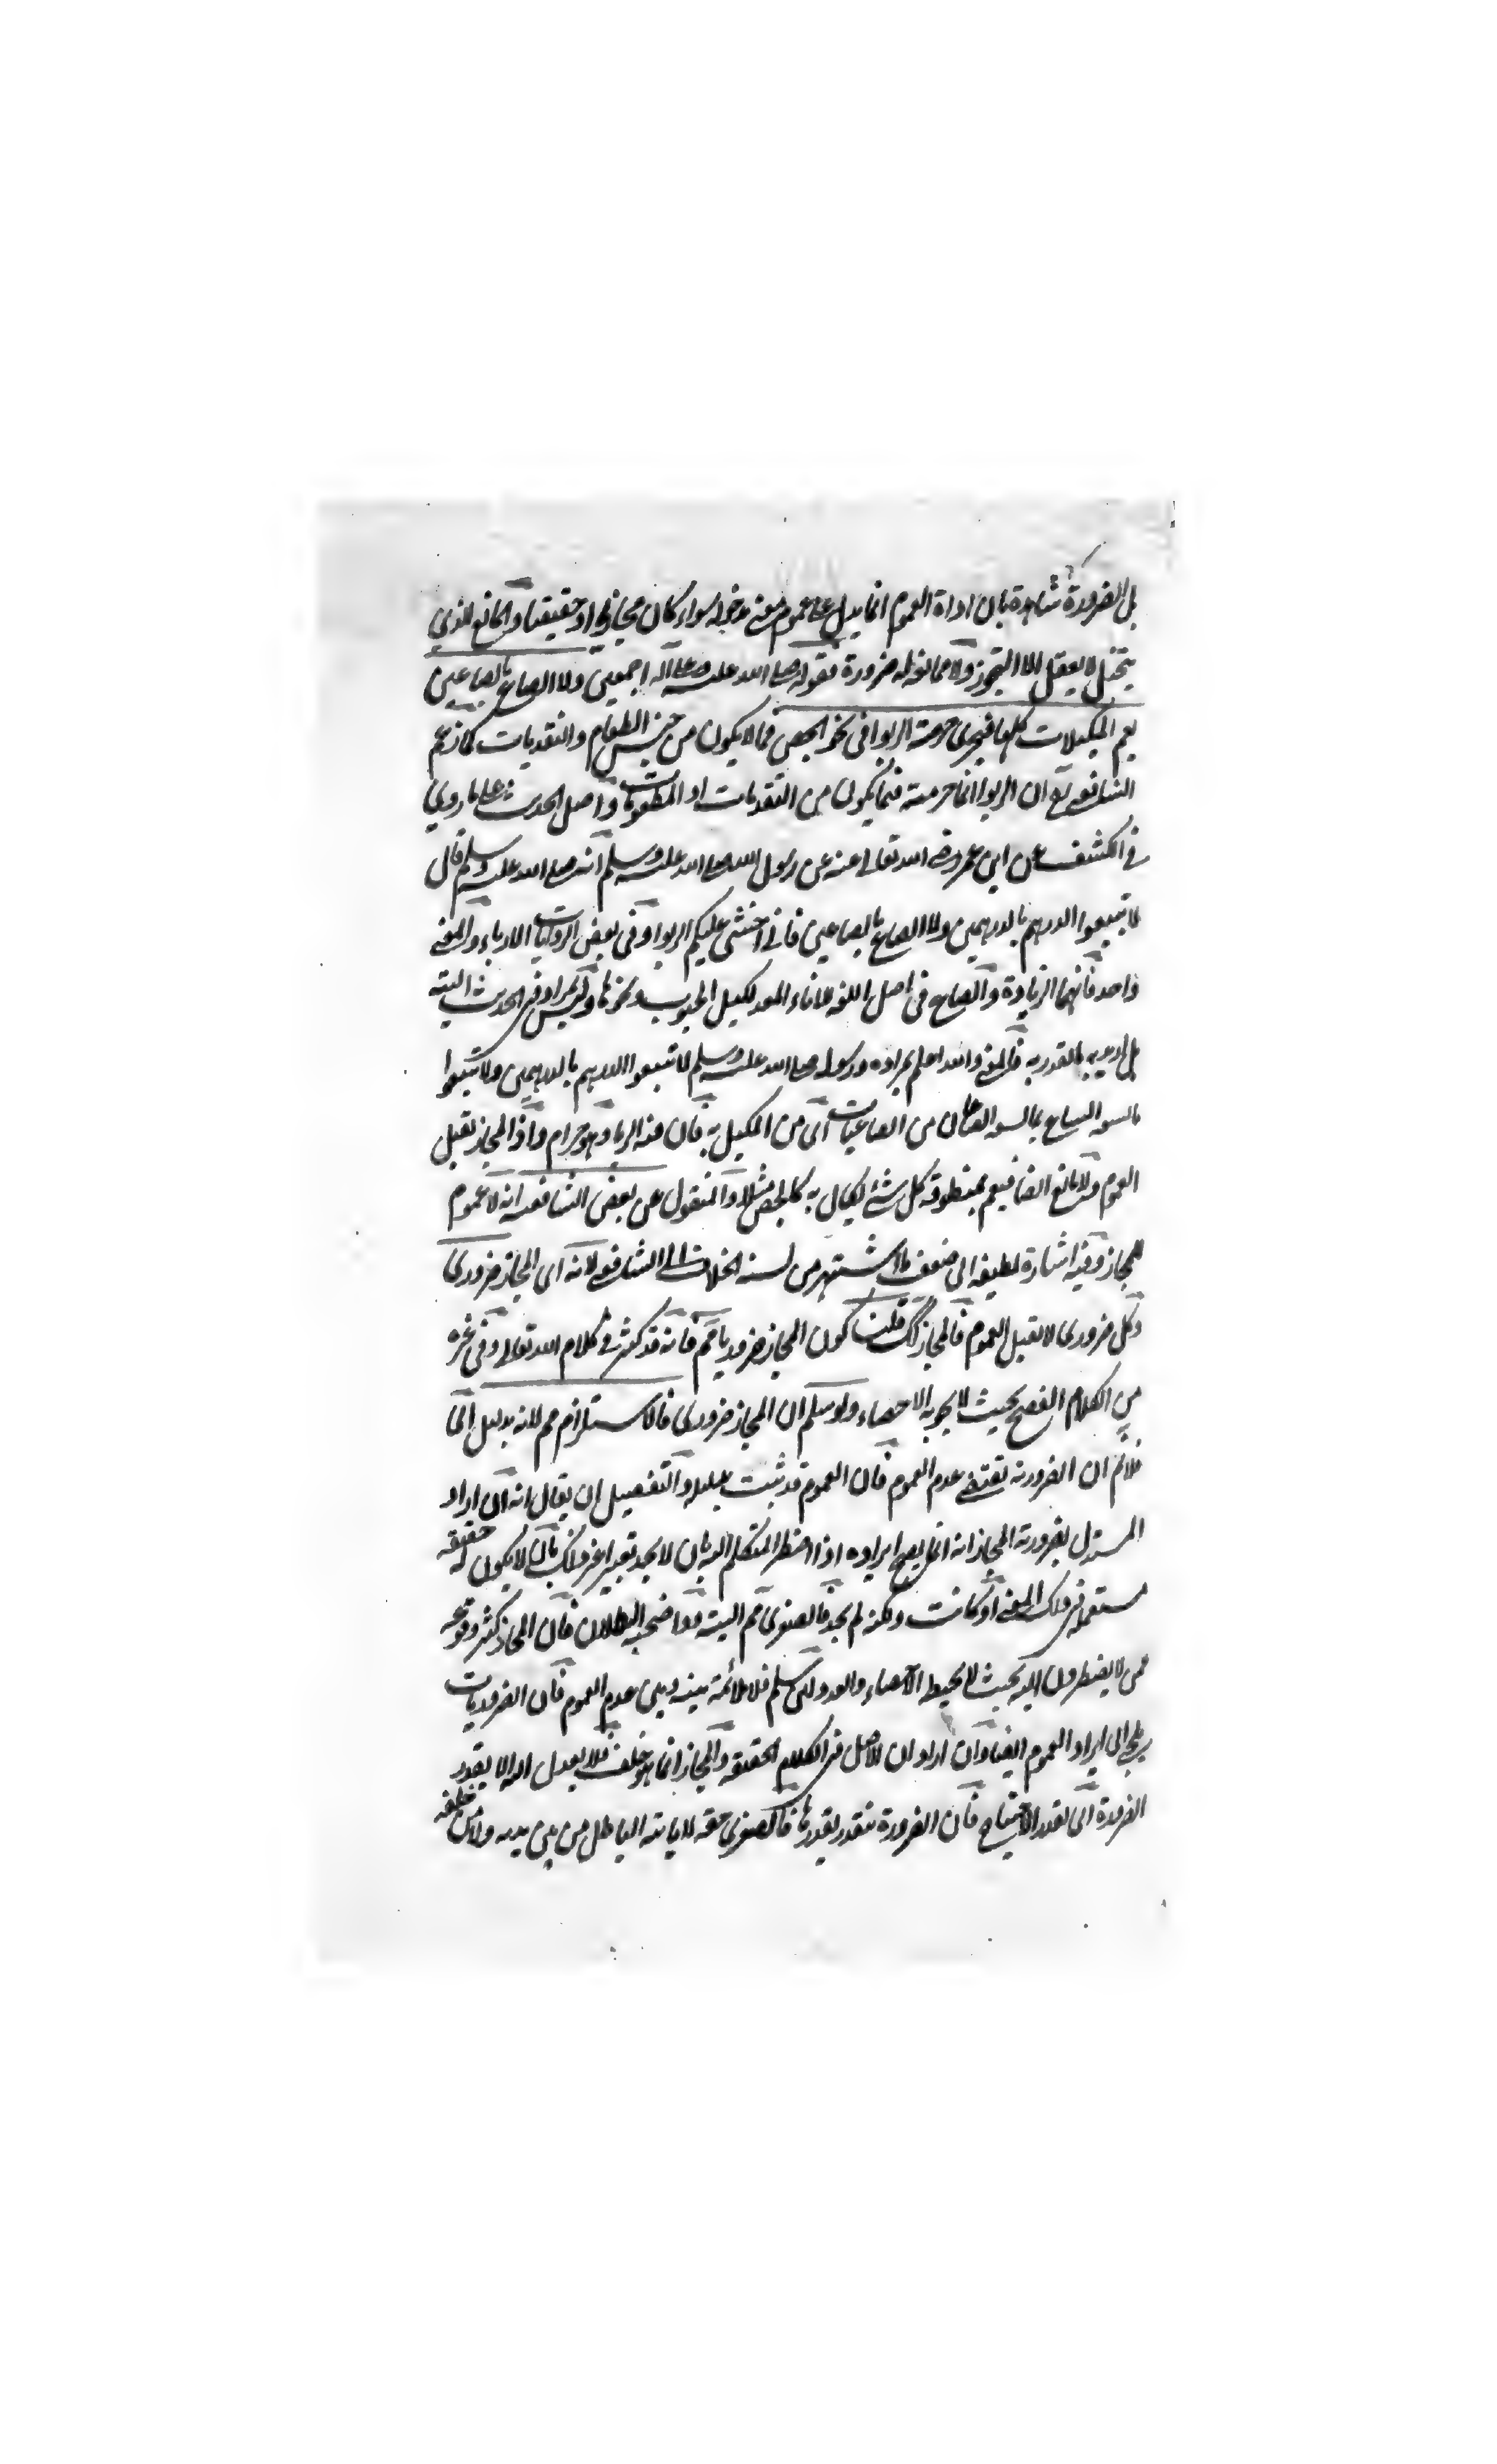 بل الضرورة شاهدة بان اداة العموم انما يدل على عموم معنى مدخوله سواء كان مجازيا او حقيقيا والمانع الذي
يتخيل لا يعقل الا التجوز ولا ممانعة له ضرورة فقوله صلى الله عليه وعلى آله اجمعين ولا الصاع بالصاعين
يعم المكيلات كلها فيجرى حرمة الربوا في نحو الجص مما لا يكون من جنس الطعام والنقديات كما زعم
الشافعي ان الربوا انما حرمته فيما يكون من النقديات او المطعومات واصل الحديث على ما روي
في الكشف عن ابن عمر رضي الله تعالى عنه عن رسول الله صلى الله عليه وسلم انه صلى الله عليه وسلم قال
لا تبيعوا الدرهم بالدرهمين ولا الصاع بالصاعين فاني اخشى عليكم الربوا وفي بعض الروايات الارباء والمعنى
واحد فانهما الزيادة والصاع في اصل اللغة للاناء المعد لكيل الحبوب ونحوها وليس المراد في الحديث البتة
بل اريد به المقدر به فالمعنى والله اعلم بمراده ورسوله صلى الله عليه وسلم لا تبيعوا الدرهم بالدرهمين ولا تبيعوا
ما يسوه الصاع بما يسوه الصاعان من الصاعيات اى من المكيل به فان هذه الزيادة حرام واذا المجاز تقبل
العموم ولا مانع ايضا فيعم بمنطوقه كل شئ يكال به كالجص مثلا والمنقول عن بعض الشافعية انه لا عموم
للمجاز وفيه اشارة لطيفة الى ضعف ما اشتهر من نسبة الخلاف الى الشافعي لانه اى المجاز ضروري
وكل ضروري لا تقبل العموم فالمجاز كك قلنا كون المجاز ضروريا مم فانه قد كثر في كلام الله تعالى وفي غيره
من الكلام الفصيح بحيث لا يحويه الاحصاء ولو سلم ان المجاز ضروري فالاستلزام مم لانه بدليل
فلانم ان الضرورة تقتضى عدم العموم فان العموم قد ثبت بدليله والتفصيل ان يقال انه ان اراد
المستدل بضرورة المجاز انه انما يصح ايراده اذا اضطر المتكلم اليه بان لا يجد تعبيرا غير ذلك بان لا يكون له حقيقة
مستعملة في ذلك المعنى او كانت ولكنه لم يجد فالصغرى مم البتة وواضحة البطلان فان المجاز كثر وقوعه
عمن لا يضطرون اليه بحيث لا يحيط الاحصاء والعد ولئن سلم فلا ملائمة بينه وبين عدم العموم فان الضروريات
يلجئ الى ايراد العموم ايضا وان اراد ان الاصل في الكلام الحقيقة والمجاز انما هو خلف فلا يعدل اليه الا بقدر
الضرورة اى بقدر الاحتياج فان الضرورة تتقدر بقدرها فالصغرى حقة لا يأتيه الباطل من بين يديه ولا من خلفه